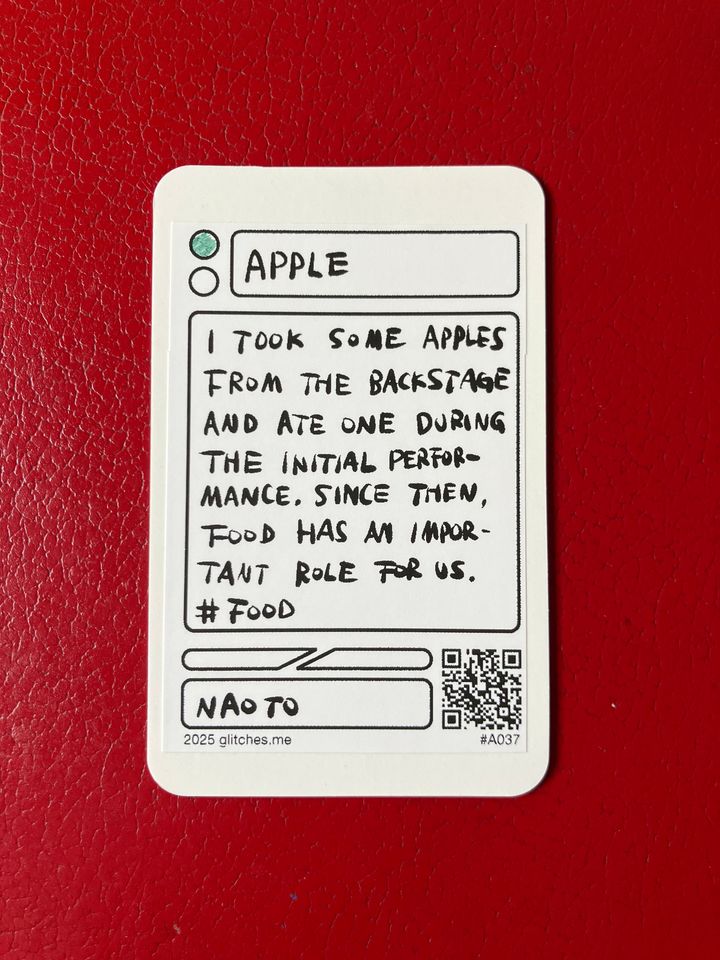 APPLE
I TOOK SOME APPLES
FROM THE BACKSTAGE
AND ATE ONE DURING
THE INITIAL PERFOR-
MANCE. SINCE THEN,
FOOD HAS AN IMPOR-
TANT ROLE FOR US.
# FOOD
NAOTO
2025 glitches.me
#A037